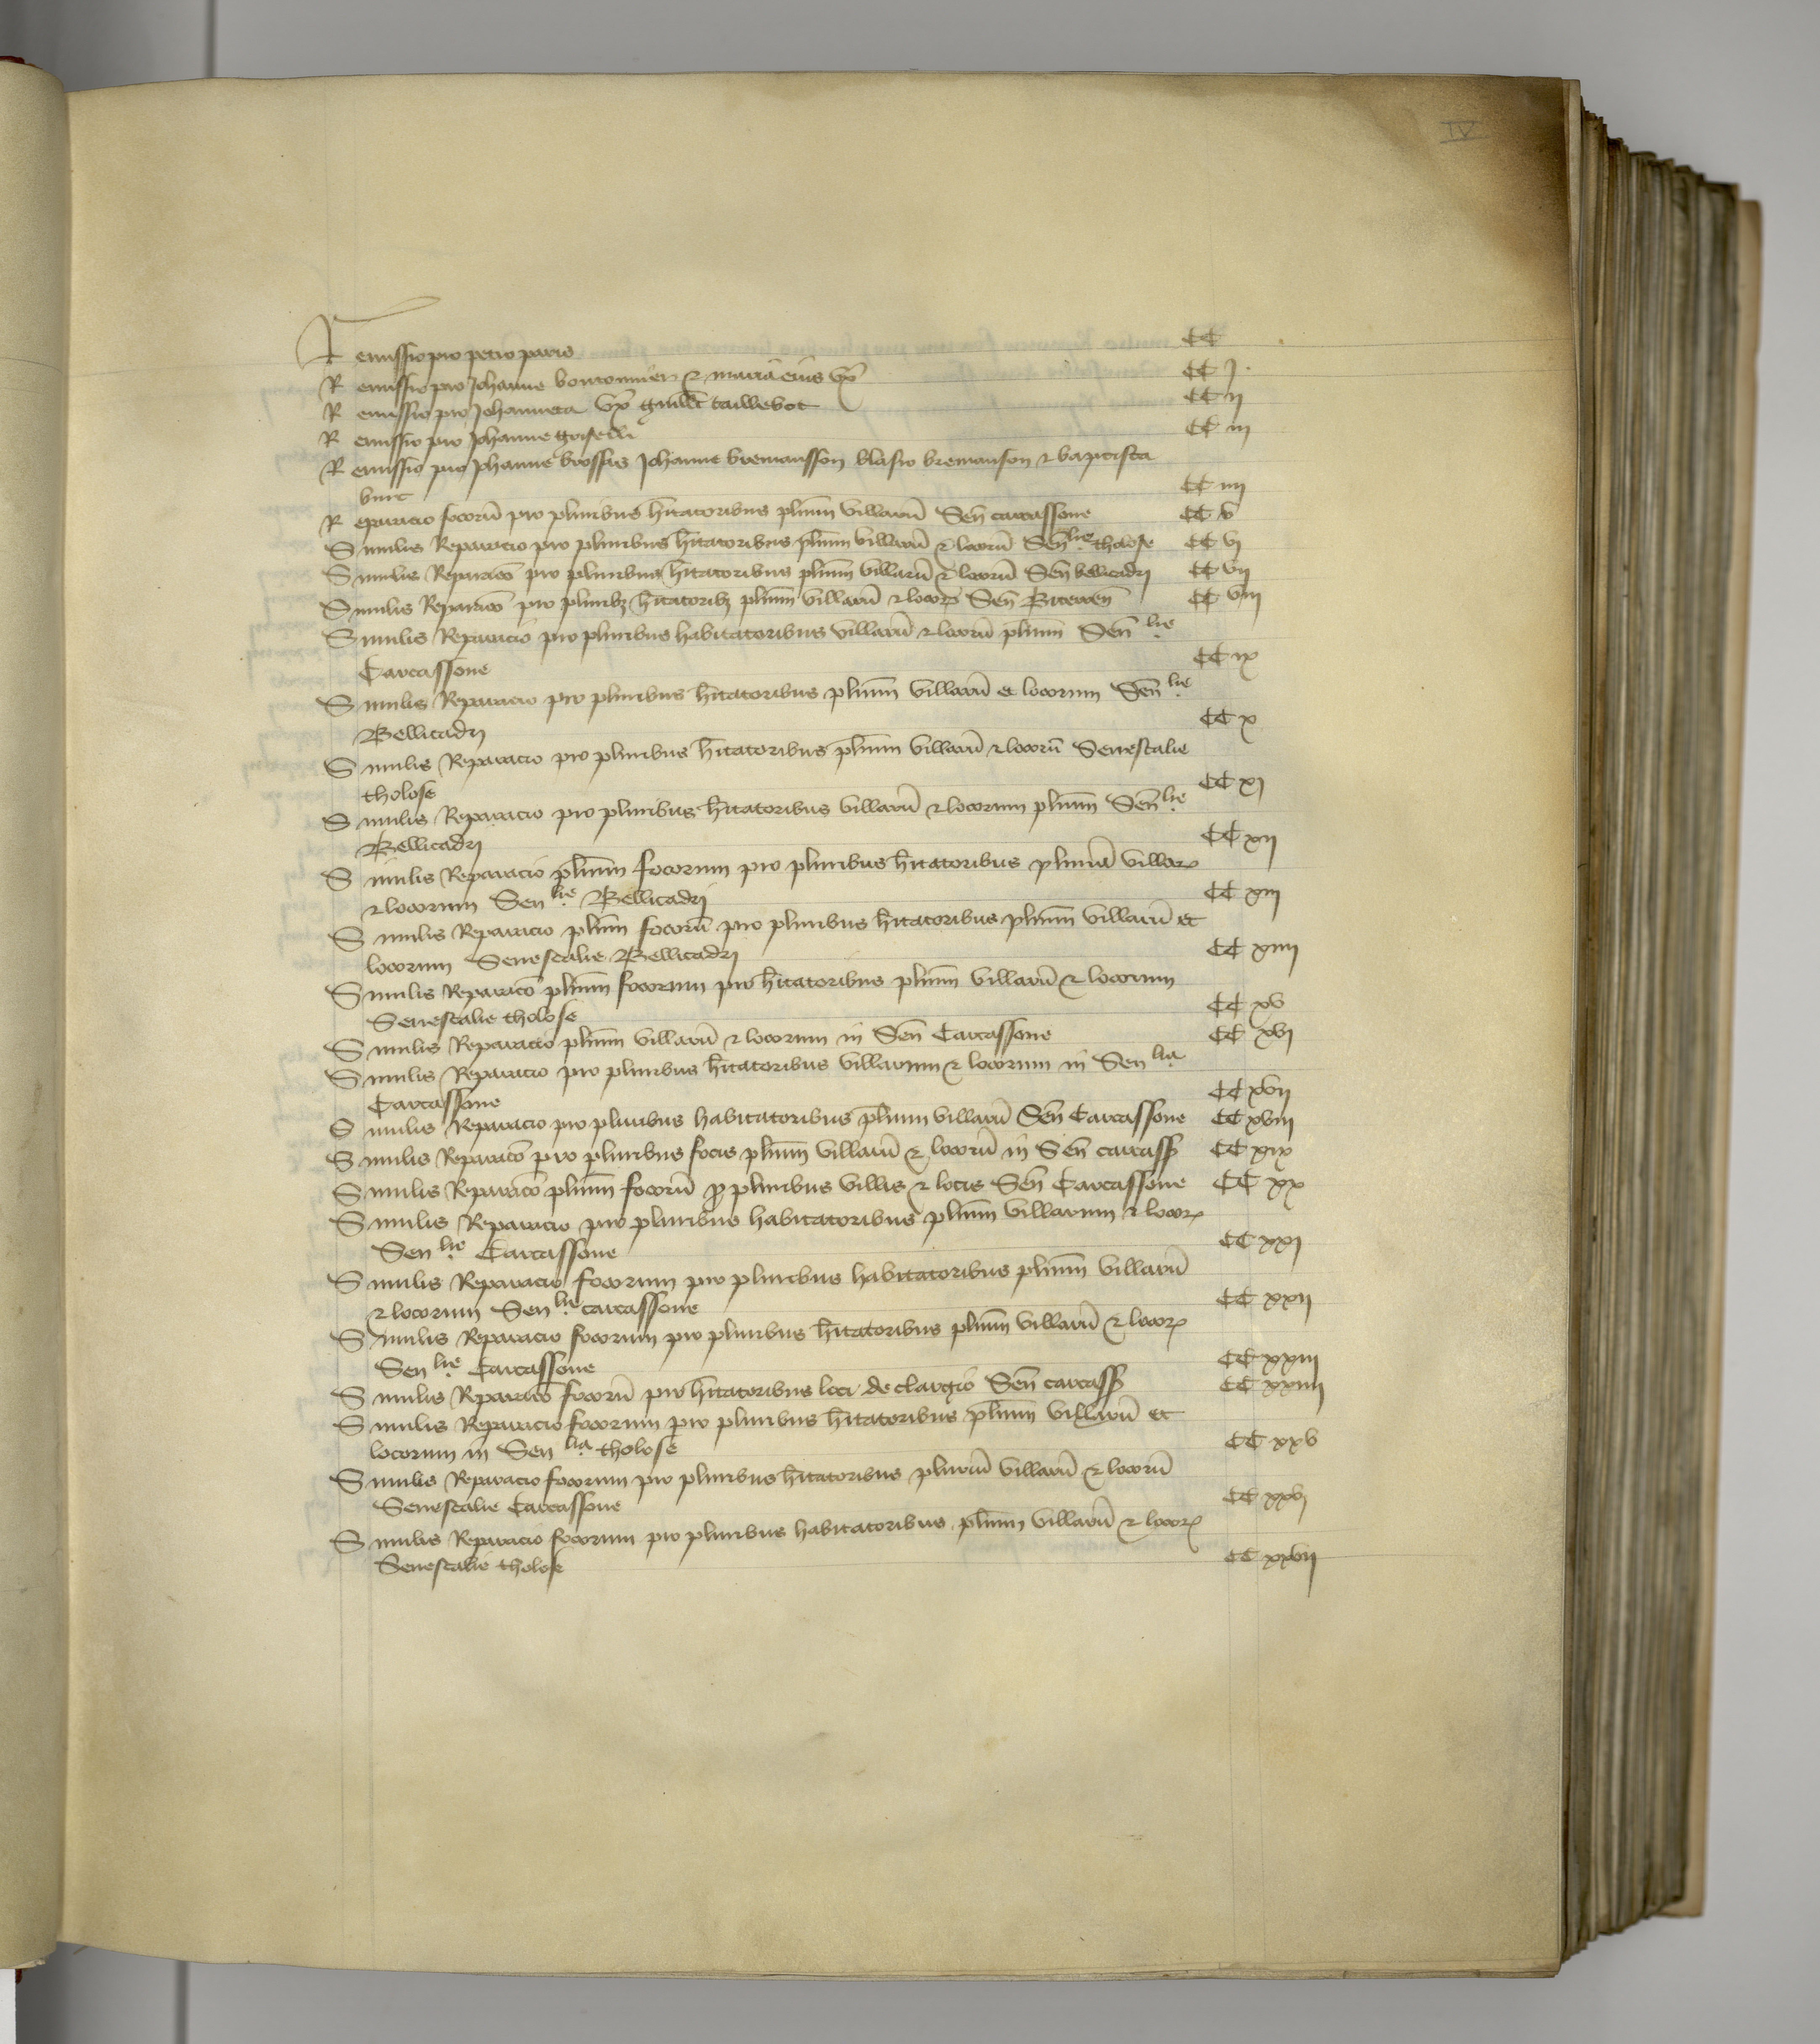 IV
Remissio pro petro paris CC
Remissio pro Johanne boutonnier & maria eius vx̄ CC j
Remissio pro Johanneta vx̄ guill̄i taillebot CC ij
Remissio pro Johanne CC iij
Remissio pro Johanne brossas Johanne bremansson blasio bremanson & baptista
CC iiij
Reparacio focorū pro pluribus h̄itatoribus pluriū villarū Sen̄ carcassone CC v
Similis Reparacio pro pluribus h̄itatoribus pluriū villarū & locorū Sen̄ lie tholose CC vj
Similis Reparacō pro pluribus h̄itatoribus pluriū villarū & locorū Sen̄ bellicadrj CC vij
Similis Reparacō pro pluribȝ h̄itatoribȝ pluriū villarū & locoꝝ Sen̄ Biterren̄ CC viij
Similis Reparacio pro pluribus habitatoribus villarū & locorū pluriū Sen̄ lie
Carcassone CC ix
Similis Reparacio pro pluribus h̄itatoribus pluriū villarū et locorum Sen̄ lie
Bellicadrj CC x
Similis Reparacio pro pluribus h̄itatoribus pluriū villarū & locorū Senescalie
tholose CC xj
Similis Reparacio pro pluribus h̄itatoribus villarū & locorum pluriū Sen̄ lie
Bellicadrj CC xij
Similis Reparacio pluriū focorum pro pluribus h̄itatoribus pluriū villaꝝ
& locorum Sen lie Bellicadrj CC xiij
Similis Reparacio pluriū focorū pro pluribus h̄itatoribus pluriū villarū et
locorum Senescalie Bellicadrj CC xiiij
Similis Reparacō pluriū focorum pro h̄itatoribus pluriū villarū & locorum
Senescalie tholose CC xv
Similis Reparacio pluriū villarū & locorum in Sen̄ Carcassone CC xvj
Similis Reparacio pro pluribus h̄itatoribus villarum & locorum in Sen lia
Carcassone CC xvij
Similis Reparacio pro pluribus habitatoribus pluriū villarū Sen̄ Carcassone CC xviij
Similis Reparacō pro pluribus focis pluriū villarū & locorū in Sen̄ carcass̄ CC xix
Similis Reparacō pluriū focorū ꝓ pluribus villis & locis Sen̄ Carcassone CC xx
Similis Reparacio pro pluribus habitatoribus pluriū villarum & locoꝝ
Sen lie Carcassone CC xxj
Similis Reparacio focorum pro pluribus habitatoribus pluriū villarū
& locorum Sen lie carcassone CC xxij
Similis Reparacio focorum pro pluribus h̄itatoribus pluriū villarū & locoꝝ
Sen lie Carcassone CC xxiij
Similis Reparacō focorū pro h̄itatoribus loci de clargio Sen̄ carcass̄ CC xxiiij
Similis Reparacio focorum pro pluribus h̄itatoribus pluriū villarū et
locorum in Sen lia tholose CC xxv
Similis Reparacio focorum pro pluribus h̄itatoribus pluriū villarū & locorū
Senescalie Carcassone CC xxvj
Similis Reparacio focorum pro pluribus habitatoribus pluriū villarū & locoꝝ
Senescalie tholose CC xxvij